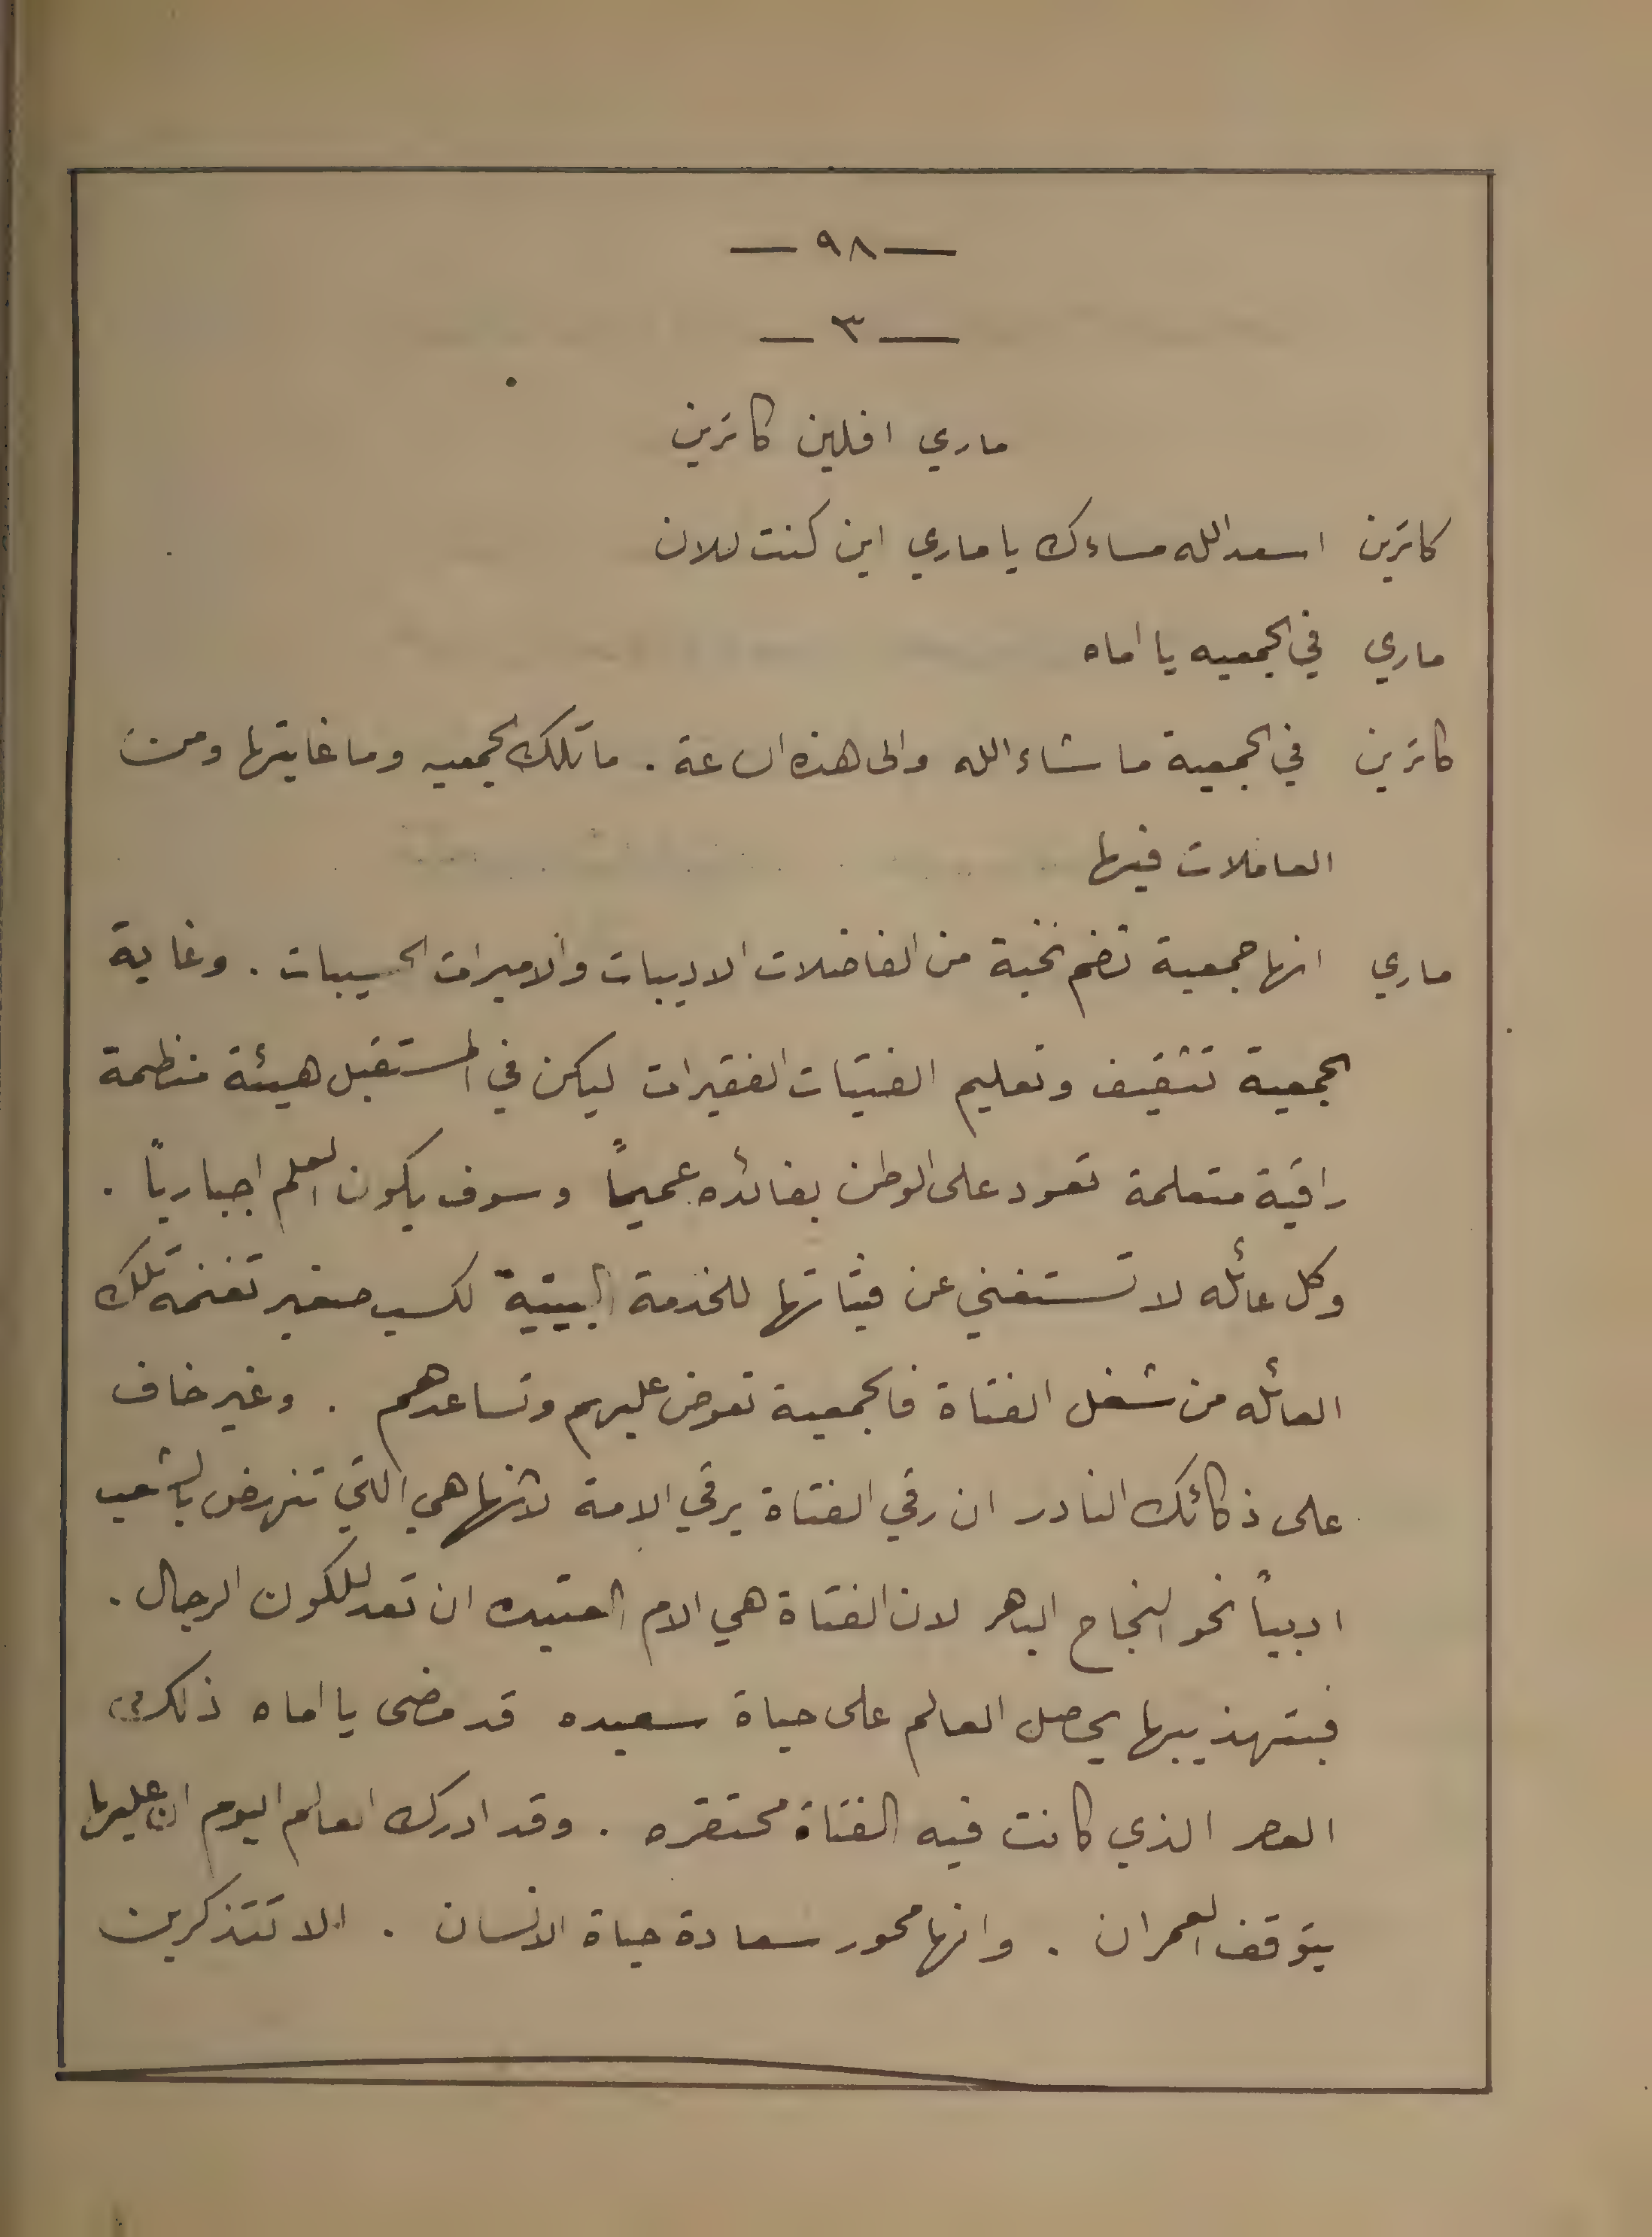 — ٩٨ —
— ٣ —
ماري افلين كاترين
كاترين اسعد الله مساءك يا ماري اين كنت للان
ماري في الجمعيه يا اماه
كاترين في الجمعية ما شاء الله والى هذه الساعة . ما تلك الجمعيه وما غايتها ومن
العاملات فيها
ماري انها جمعية تضم نخبة من الفاضلات الاديبات والاميرات الحسيبات . وغاية
الجمعية تثقيف وتعليم الفتيات الفقيرات ليكن في المستقبل هيئة منظمة
راقية متعلمة تعود على الوطن بفائده عميماً وسوف يكون العلم اجبارياً .
وكل عائله لا تستغني عن فتاتها للخدمة البيتية لكسب صغير تغنمه تلك
العائله من شغل الفتاة فالجمعية تعوض عليهم وتساعدهم . وغير خاف
على ذكائك النادر ان رقي الفتاة يرقي الامة لانها هي اللتي تنهض بالشعب
ادبياً نحو النجاح الباهر لان الفتاة هي الام العتيده ان تعد للكون الرجال .
فبتهذيبها يحصل العالم على حياة سعيده قد مضى يا اماه ذلك
العصر الذي كانت فيه الفتاة محتقره . وقد ادرك العالم اليوم ان عليها
يتوقف العمران . وانها محور سعادة حياة الانسان . الا تتذكرين